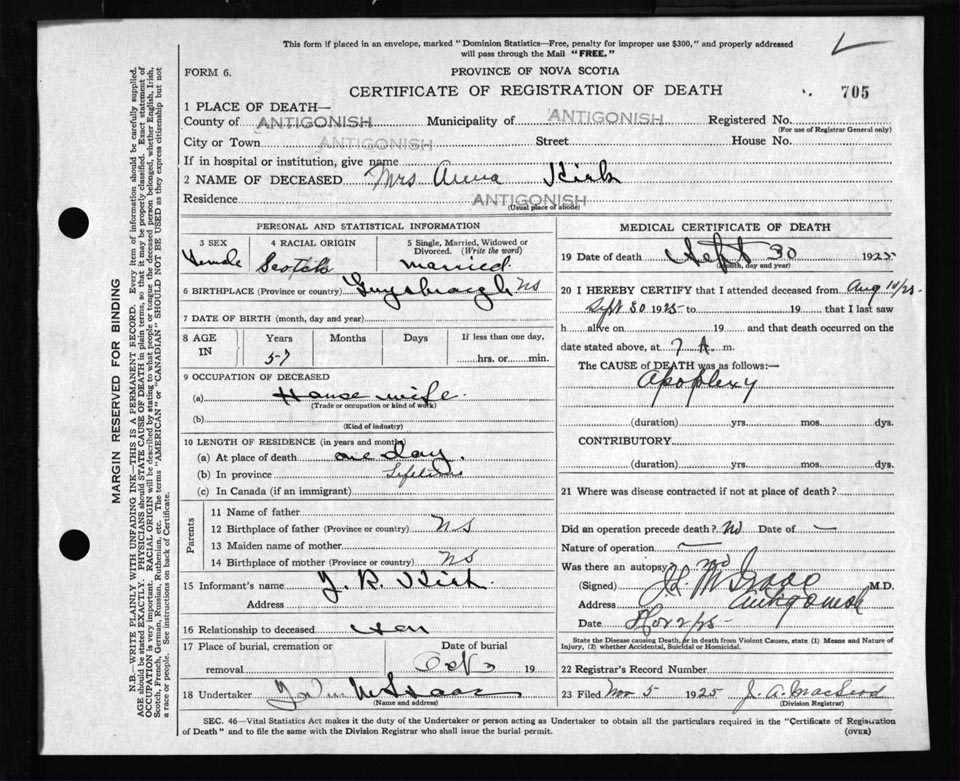 This form if placed in an envelope, marked "Dominion Statistics—Free, penalty for improper use $300," and properly addressed
will pass through the Mail "FREE."
FORM 6.
PROVINCE OF NOVA SCOTIA
CERTIFICATE OF REGISTRATION OF DEATH
705
1 PLACE OF DEATH—
County of ANTIGONISH Municipality of ANTIGONISH Registered No.
(For use of Registrar General only)
City or Town ANTIGONISH Street House No.
If in hospital or institution, give name
2 NAME OF DECEASED Mrs Anna Kirk
Residence ANTIGONISH
(Usual place of abode)
PERSONAL AND STATISTICAL INFORMATION
3 SEX 4 RACIAL ORIGIN 5 Single, Married, Widowed or
Divorced. (Write the word)
Female Scotch married
6 BIRTHPLACE (Province or country) Guysboragh NS
7 DATE OF BIRTH (month, day and year)
8 AGE Years Months Days If less than one day,
IN 57 hrs. or min.
9 OCCUPATION OF DECEASED
(a) House wife
(Trade or occupation or kind of work)
(b)
(Kind of industry)
10 LENGTH OF RESIDENCE (in years and months)
(a) At place of death one day.
(b) In province Lifetime
(c) In Canada (if an immigrant)
Parents
11 Name of father
12 Birthplace of father (Province or country) NS
13 Maiden name of mother
14 Birthplace of mother (Province or country) NS
15 Informant's name R. Kirk
Address
16 Relationship to deceased
17 Place of burial, cremation or Date of burial
removal Oct 3 19
18 Undertaker McIsaac
(Name and address)
MEDICAL CERTIFICATE OF DEATH
19 Date of death Sept 30 1925
(Month, day and year)
20 I HEREBY CERTIFY that I attended deceased from Aug 10/25
Sept 30 1925 to 19 that I last saw
h alive on 19 and that death occurred on the
date stated above, at 7 A. m.
The CAUSE of DEATH was as follows:—
Apoplexy
(duration) yrs. mos. dys.
CONTRIBUTORY
(duration) yrs. mos. dys.
21 Where was disease contracted if not at place of death?
Did an operation precede death? No Date of —
Nature of operation —
Was there an autopsy? no
(Signed) M.D.
Address Antigonish
Date Nov 2/25
State the Disease causing Death, or in death from Violent Causes, state (1) Means and Nature of
Injury, (2) whether Accidental, Suicidal or Homicidal.
22 Registrar's Record Number
23 Filed Nov 5 1925 J. A. MacLeod
(Division Registrar)
SEC. 46—Vital Statistics Act makes it the duty of the Undertaker or person acting as Undertaker to obtain all the particulars required in the "Certificate of Registration
of Death" and to file the same with the Division Registrar who shall issue the burial permit. (OVER)
MARGIN RESERVED FOR BINDING
N.B.—WRITE PLAINLY WITH UNFADING INK—THIS IS A PERMANENT RECORD. Every item of information should be carefully supplied.
AGE should be stated EXACTLY. PHYSICIANS should STATE CAUSE OF DEATH in plain terms, so that it may be properly classified. Exact statement of
OCCUPATION is very important. RACIAL ORIGIN will be described by stating to what people or tongue the deceased person belonged, whether English, Irish,
Scotch, French, German, Russian, Ruthenian, etc. The terms "AMERICAN" or "CANADIAN" SHOULD NOT BE USED as they express citizenship but not
a race or people. See instructions on back of Certificate.